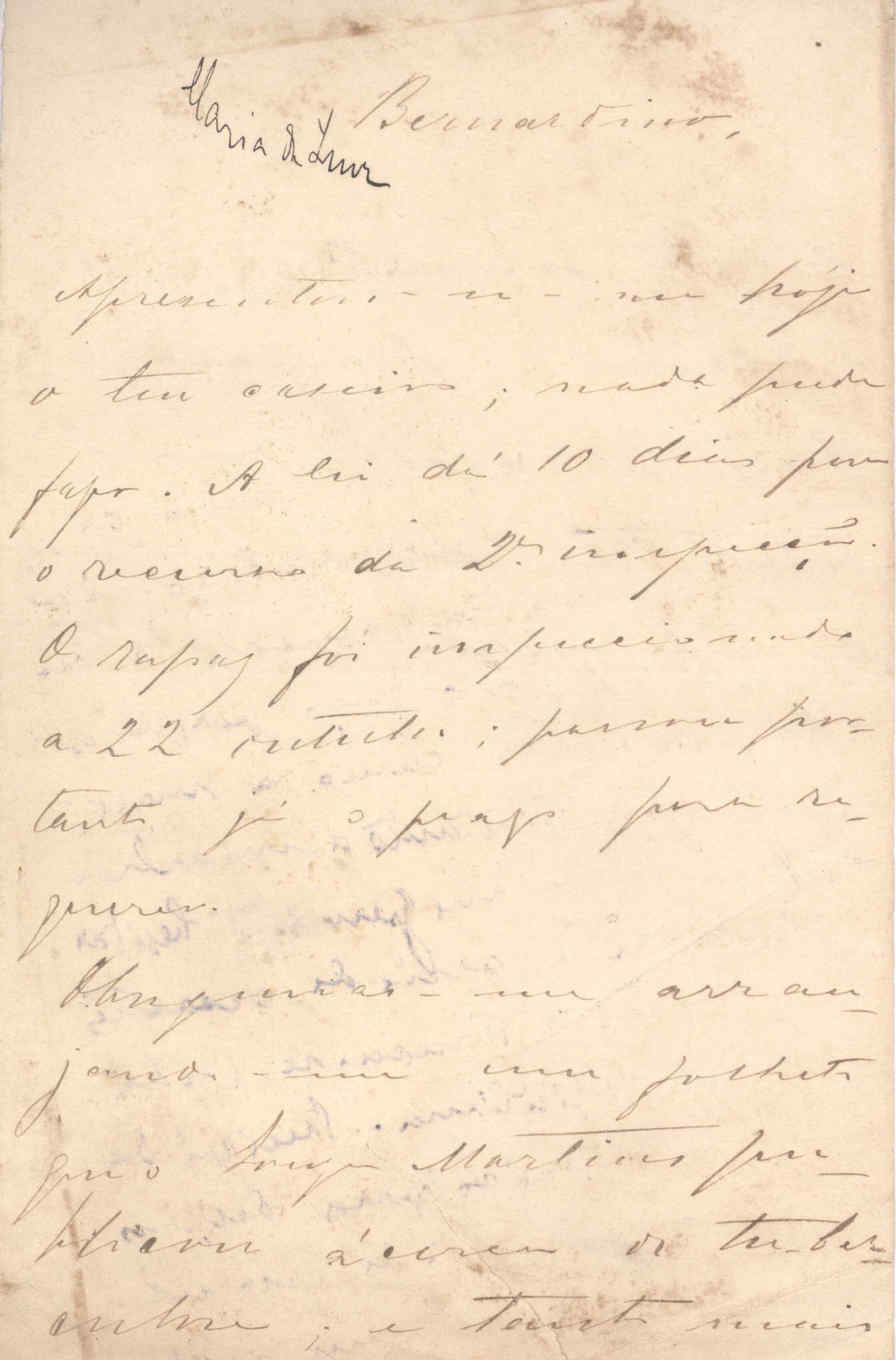 Maria da Luz
Bernardino,
Apresentou-se-me hóje
o teu caseiro; nada pude
fazer. A lei dá 10 dias para
o recurso da 2ª inspecção.
O rapaz foi inspeccionado
a 22 outubro; passou por-
tanto já o prazo para re-
querer.
Obsequeias-me arran-
jando-me um folheto
que o Souza Martins pu-
blicou ácerca de tuber-
culose; e tanto mais